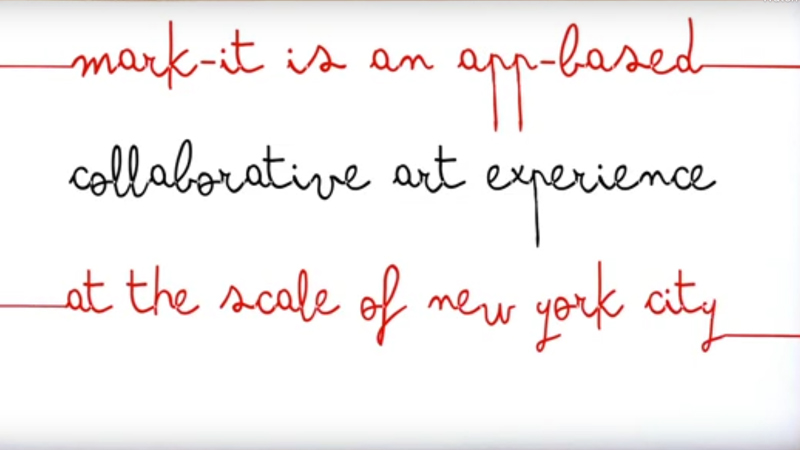 mark-it is an app-based
collaborative art experience
at the scale of new york city